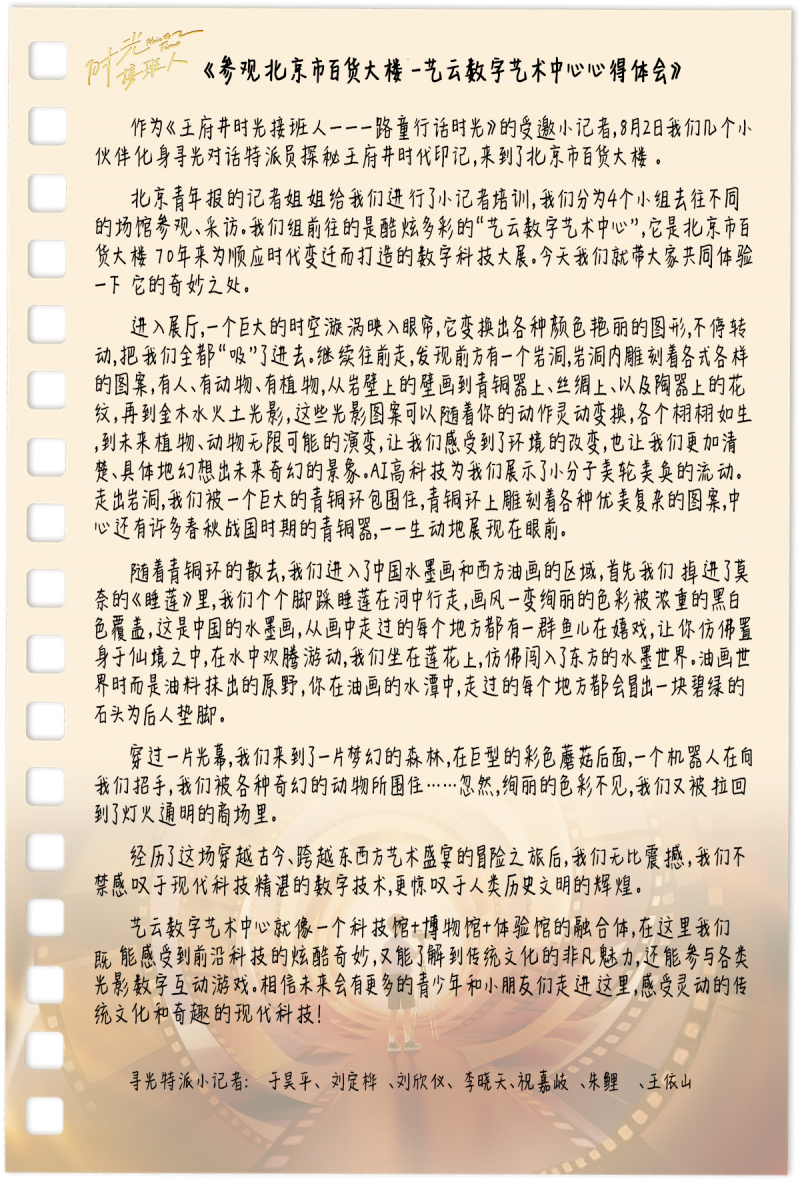 时光
接班人
《参观北京市百货大楼-艺云数字艺术中心心得体会》
作为《王府井时光接班人---一路童行话时光》的受邀小记者,8月2日我们几个小
伙伴化身寻光对话特派员探秘王府井时代印记,来到了北京市百货大楼 。
北京青年报的记者姐姐给我们进行了小记者培训,我们分为4个小组去往不同
的场馆参观、采访。我们组前往的是酷炫多彩的“艺云数字艺术中心”,它是北京市百
货大楼 70年来为顺应时代变迁而打造的数字科技大展。今天我们就带大家共同体验
一下 它的奇妙之处。
进入展厅,一个巨大的时空漩涡映入眼帘,它变换出各种颜色艳丽的图形,不停转
动,把我们全都“吸”了进去。继续往前走,发现前方有一个岩洞,岩洞内雕刻着各式各样
的图案,有人、有动物、有植物,从岩壁上的壁画到青铜器上、丝绸上、以及陶器上的花
纹,再到金木水火土光影,这些光影图案可以随着你的动作灵动变换,各个栩栩如生
,到未来植物、动物无限可能的演变,让我们感受到了环境的改变,也让我们更加清
楚、具体地幻想出未来奇幻的景象。AI高科技为我们展示了小分子美轮美奂的流动。
走出岩洞,我们被一个巨大的青铜环包围住,青铜环上雕刻着各种优美复杂的图案,中
心还有许多春秋战国时期的青铜器,一一生动地展现在眼前。
随着青铜环的散去,我们进入了中国水墨画和西方油画的区域,首先我们 掉进了莫
奈的《睡莲》里,我们个个脚踩睡莲在河中行走,画风一变绚丽的色彩被浓重的黑白
色覆盖,这是中国的水墨画,从画中走过的每个地方都有一群鱼儿在嬉戏,让你仿佛置
身于仙境之中,在水中欢腾游动,我们坐在莲花上,仿佛闯入了东方的水墨世界。油画世
界时而是油料抹出的原野,你在油画的水潭中,走过的每个地方都会冒出一块碧绿的
石头为后人垫脚。
穿过一片光幕,我们来到了一片梦幻的森林,在巨型的彩色蘑菇后面,一个机器人在向
我们招手,我们被各种奇幻的动物所围住……忽然,绚丽的色彩不见,我们又被拉回
到了灯火通明的商场里。
经历了这场穿越古今、跨越东西方艺术盛宴的冒险之旅后,我们无比震撼,我们不
禁感叹于现代科技精湛的数字技术,更惊叹于人类历史文明的辉煌。
艺云数字艺术中心就像一个科技馆+博物馆+体验馆的融合体,在这里我们
既 能感受到前沿科技的炫酷奇妙,又能了解到传统文化的非凡魅力,还能参与各类
光影数字互动游戏。相信未来会有更多的青少年和小朋友们走进这里,感受灵动的传
统文化和奇趣的现代科技!
寻光特派小记者: 于昊平、刘定桦 、刘欣仪、李晓天、祝嘉岐 、朱鲤 、王依山